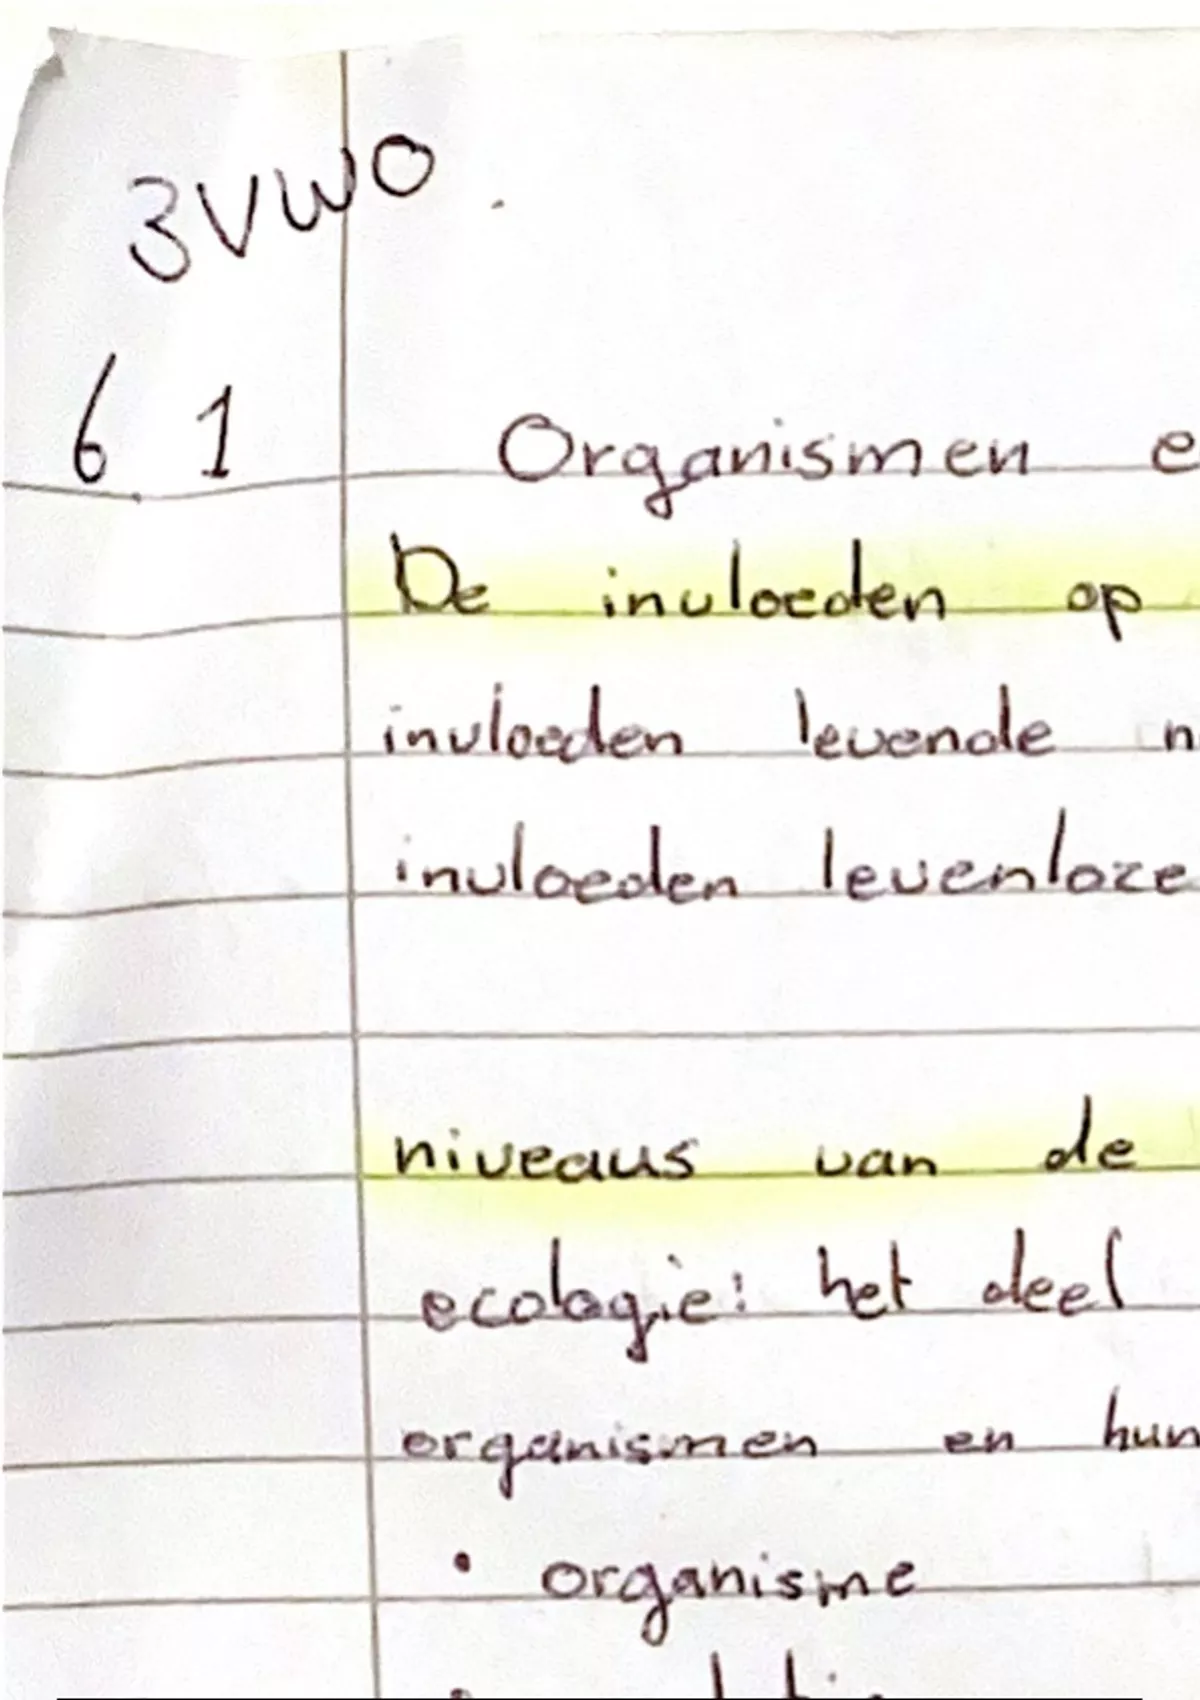 3VWO
6.1 Organismen e
De invloeden op
invloeden levende n
invloeden levenloze
niveaus van de
ecologie: het deel
organismen en hun
• organisme